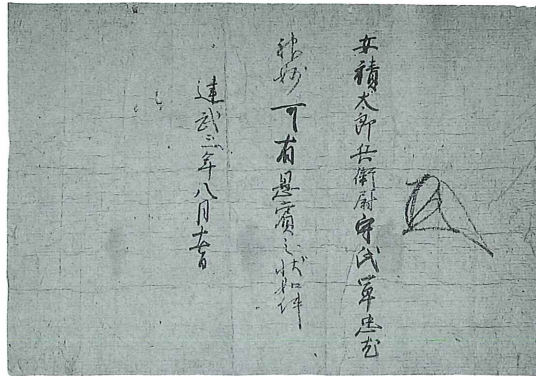 安積太郎兵衛尉守氏軍忠尤
神妙可有恩賞之状如件
建武三年八月日